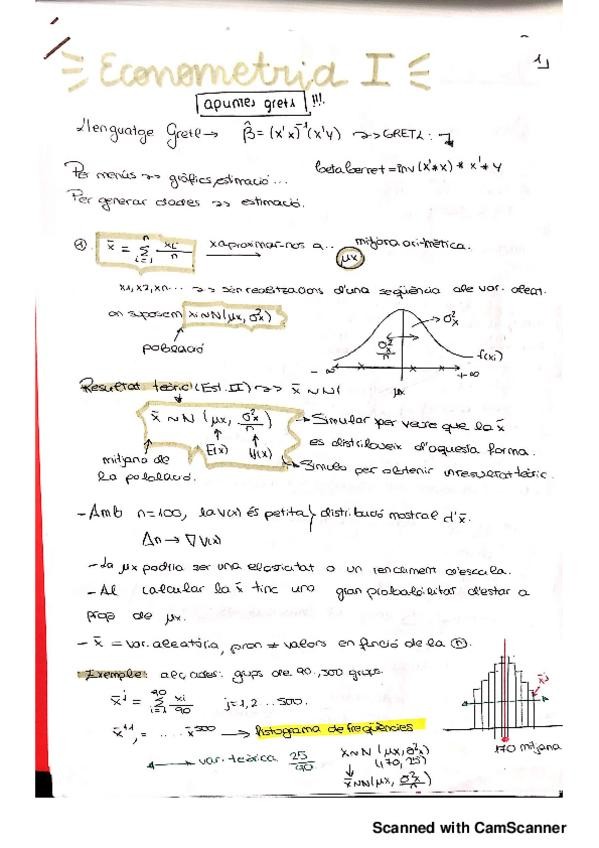 Econometria I
1
apunts gretl !!!
Llenguatge Gretl → β̂ = (x'x)⁻¹(x'y) ⤳ GRETL:
betabarret = inv(x'*x) * x'*y
Per menús ⤳ gràfics, estimació...
Per generar dades ⤳ estimació.
① x̄ = Σ(i=1, n) xi/n x aproximar-nos a... mitjana aritmètica.
μx
x1, x2, xn... ⤳ són realitzacions d'una seqüència de var. aleat.
on suposem xi ~ N(μx, σ²x)
població
σ²x
σ²x
f(xi)
-∞ +∞
μx
Resultat teòric (Est. II) ⤳ x̄ ~ N(
x̄ ~ N(μx, σ²x/n) → Simular per veure que la x̄
es distribueix d'aquesta forma.
E(x) V(x)
mitjana de
la població.
→ Simulo per obtenir un resultat teòric.
- Amb n=100, la v(x) és petita} distribució mostral d'x̄.
Δn → ∇ V(x)
- La μx podria ser una elasticitat o un rendiment d'escala.
- Al calcular la x̄ tinc una gran probabilitat d'estar a
prop de μx.
- x̄ = var. aleatòria, pren ≠ valors en funció de la n.
Exemple: alçades: grups de 90, 500 grups.
x̄ʲ = Σ(i=1, 90) xi/90 j=1,2 ...500.
x̄ʲ
x̄¹, = ... x̄⁵⁰⁰ → histograma de freqüències
170 mitjana
↔ var. teòrica 25/90
x ~ N(μx, σ²x)
(170, 25)
x̄ ~ N(μx, σ²x/n)
Scanned with CamScanner